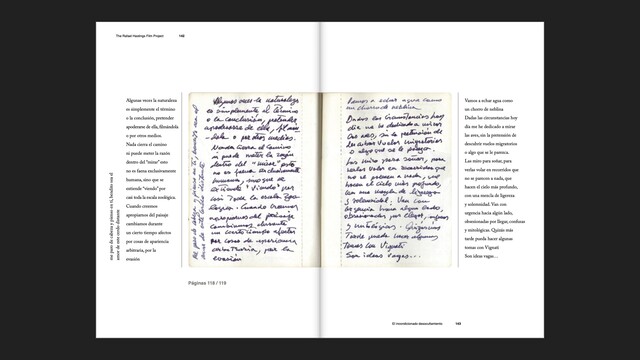 The Rafael Hastings Film Project
148
Algunas veces la naturaleza
es simplemente el término
o la conclusión, pretender
apoderarse de ella, filmándola
o por otros medios.
Nada cierra el camino
ni puede meter la razón
dentro del "mirar" esto
no es faena exclusivamente
humana, sino que se
entiende "viendo" por
casi toda la escala zoológica.
Cuando creemos
apropiarnos del paisaje
cambiamos durante
un cierto tiempo afectos
por cosas de apariencia
arbitraria, por la
evasión
me paro de cabeza y pienso en ti, bendito sea el
amor de este cerdo distante
Algunas veces la naturaleza
es simplemente el término
o la conclusión, pretender
apoderarse de ella, filmán-
dola o por otros medios.
Nada cierra el camino
ni puede meter la razón
dentro del "mirar" esto
no es faena exclusivamente
humana, sino que se
entiende "viendo" por
casi toda la escala zoo
lógica. Cuando creemos
apropiarnos del paisaje
cambiamos durante
un cierto tiempo afectos
por cosas de apariencia
arbitraria, por la
evasión
me paro de cabeza y pienso en ti, bendito sea el
amor de este cerdo distante
Vamos a echar agua como
un chorro de neblina
Dadas las circunstancias hoy
día me he dedicado a mirar
las aves, sin la pretensión de
descubrir vuelos migratorios
o algo que se le parezca.
Las miro para soñar, para
verlas volar en recorridos que
no se parecen a nada, que
hacen el cielo más profundo,
con una mezcla de ligereza
y solemnidad. Van con
urgencia hacia algún lado,
obsesionadas por llegar, confusas
y mitológicas. Quizás más
tarde pueda hacer algunas
tomas con Vignati
Son ideas vagas...
Vamos a echar agua como
un chorro de neblina
Dadas las circunstancias hoy
día me he dedicado a mirar
las aves, sin la pretensión de
descubrir vuelos migratorios
o algo que se le parezca.
Las miro para soñar, para
verlas volar en recorridos que
no se parecen a nada, que
hacen el cielo más profundo,
con una mezcla de ligereza
y solemnidad. Van con
urgencia hacia algún lado,
obsesionadas por llegar, confusas
y mitológicas. Quizás más
tarde pueda hacer algunas
tomas con Vignati
Son ideas vagas...
Páginas 118 / 119
El incondicionado desocultamiento
149